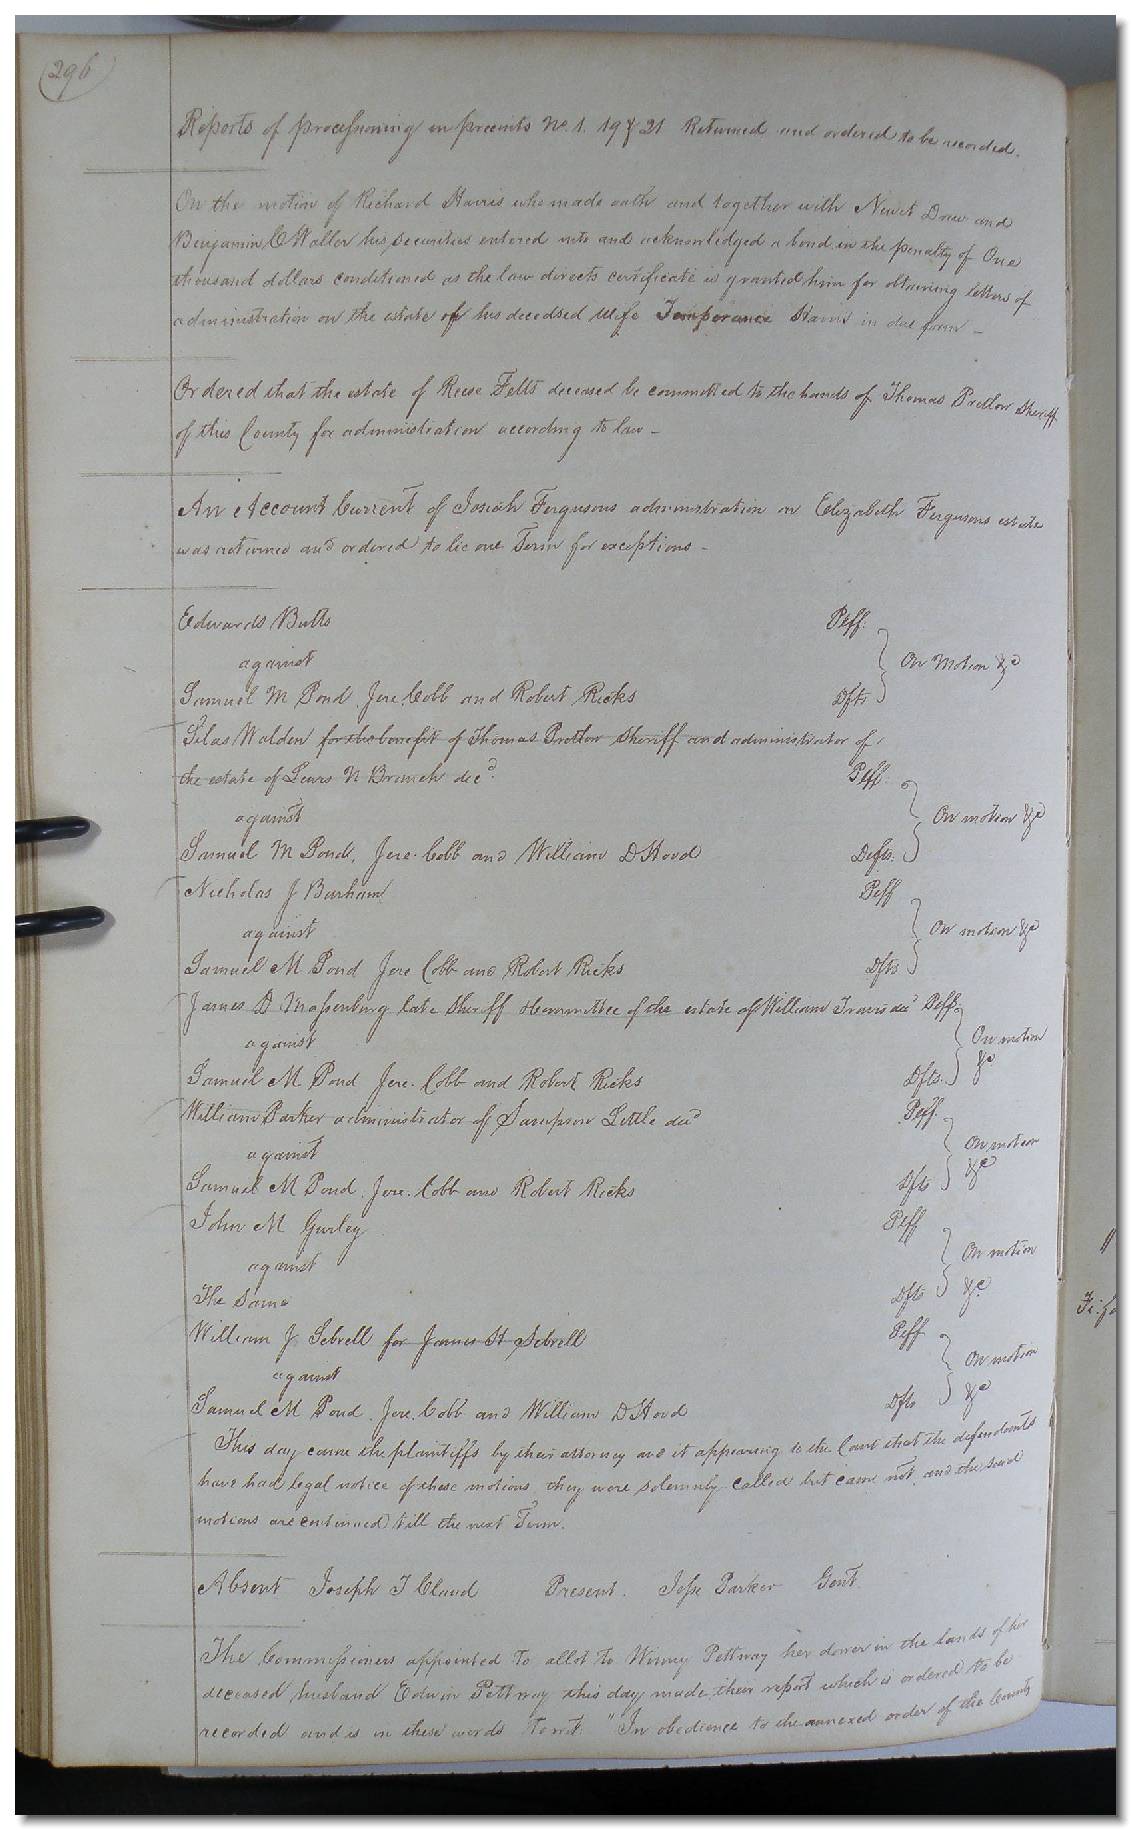 (296)
Reports of processioning in precincts No. 1. 19 & 21 Returned and ordered to be recorded.
On the motion of Richard Harris who made oath and together with Newit Drew and
Benjamin C Waller his securities entered into and acknowledged a bond in the penalty of One
thousand dollars conditioned as the law directs certificate is granted him for obtaining letters of
administration on the estate of his deceased wife Temperance Harris in due form _
Ordered that the estate of Reese Felts deceased be committed to the hands of Thomas Pretlow Sheriff
of this County for administration according to law _
An Account Current of Josiah Fergusons administration on Elizabeth Fergusons estate
was returned and ordered to lie one Term for exceptions _
Edwards Butts Plff.
against On Motion &c
Samuel M Pond, Jere. Cobb and Robert Ricks Dfts
Silas Walden for the benefit of Thomas Pretlow Sheriff and administrator of
the estate of Lewis N Branch decd. Plff.
against On motion &c
Samuel M Pond, Jere. Cobb and William D Hood Defts.
Nicholas J Barham Plff
against On motion &c
Samuel M Pond Jere Cobb and Robert Ricks Dfts
James D Massenburg late Sheriff & committee of the estate of William Travis decd Plff.
against On motion
&c
Samuel M Pond Jere. Cobb and Robert Ricks Dfts.
William Parker administrator of Sampson Little decd Plff.
against On motion
&c
Samuel M Pond, Jere. Cobb and Robert Ricks Dfts
John M Gurley Plff
against On motion
The Same Dfts &c
William J Sebrell for James H Sebrell Plff
against On motion
&c
Samuel M Pond, Jere. Cobb and William D Hood Dfts
This day came the plaintiffs by their attorney and it appearing to the Court that the defendants
have had legal notice of these motions, they were solemnly called but came not, and the said
motions are continued till the next Term.
Absent Joseph T Claud Present. Jesse Parker Gent.
The Commissioners appointed to allot to Winney Pettway her dower in the lands of her
deceased husband Edwin Pettway this day made their report which is ordered to be
recorded and is in these words Towit. "In obedience to the annexed order of the County
"
Fi: fa